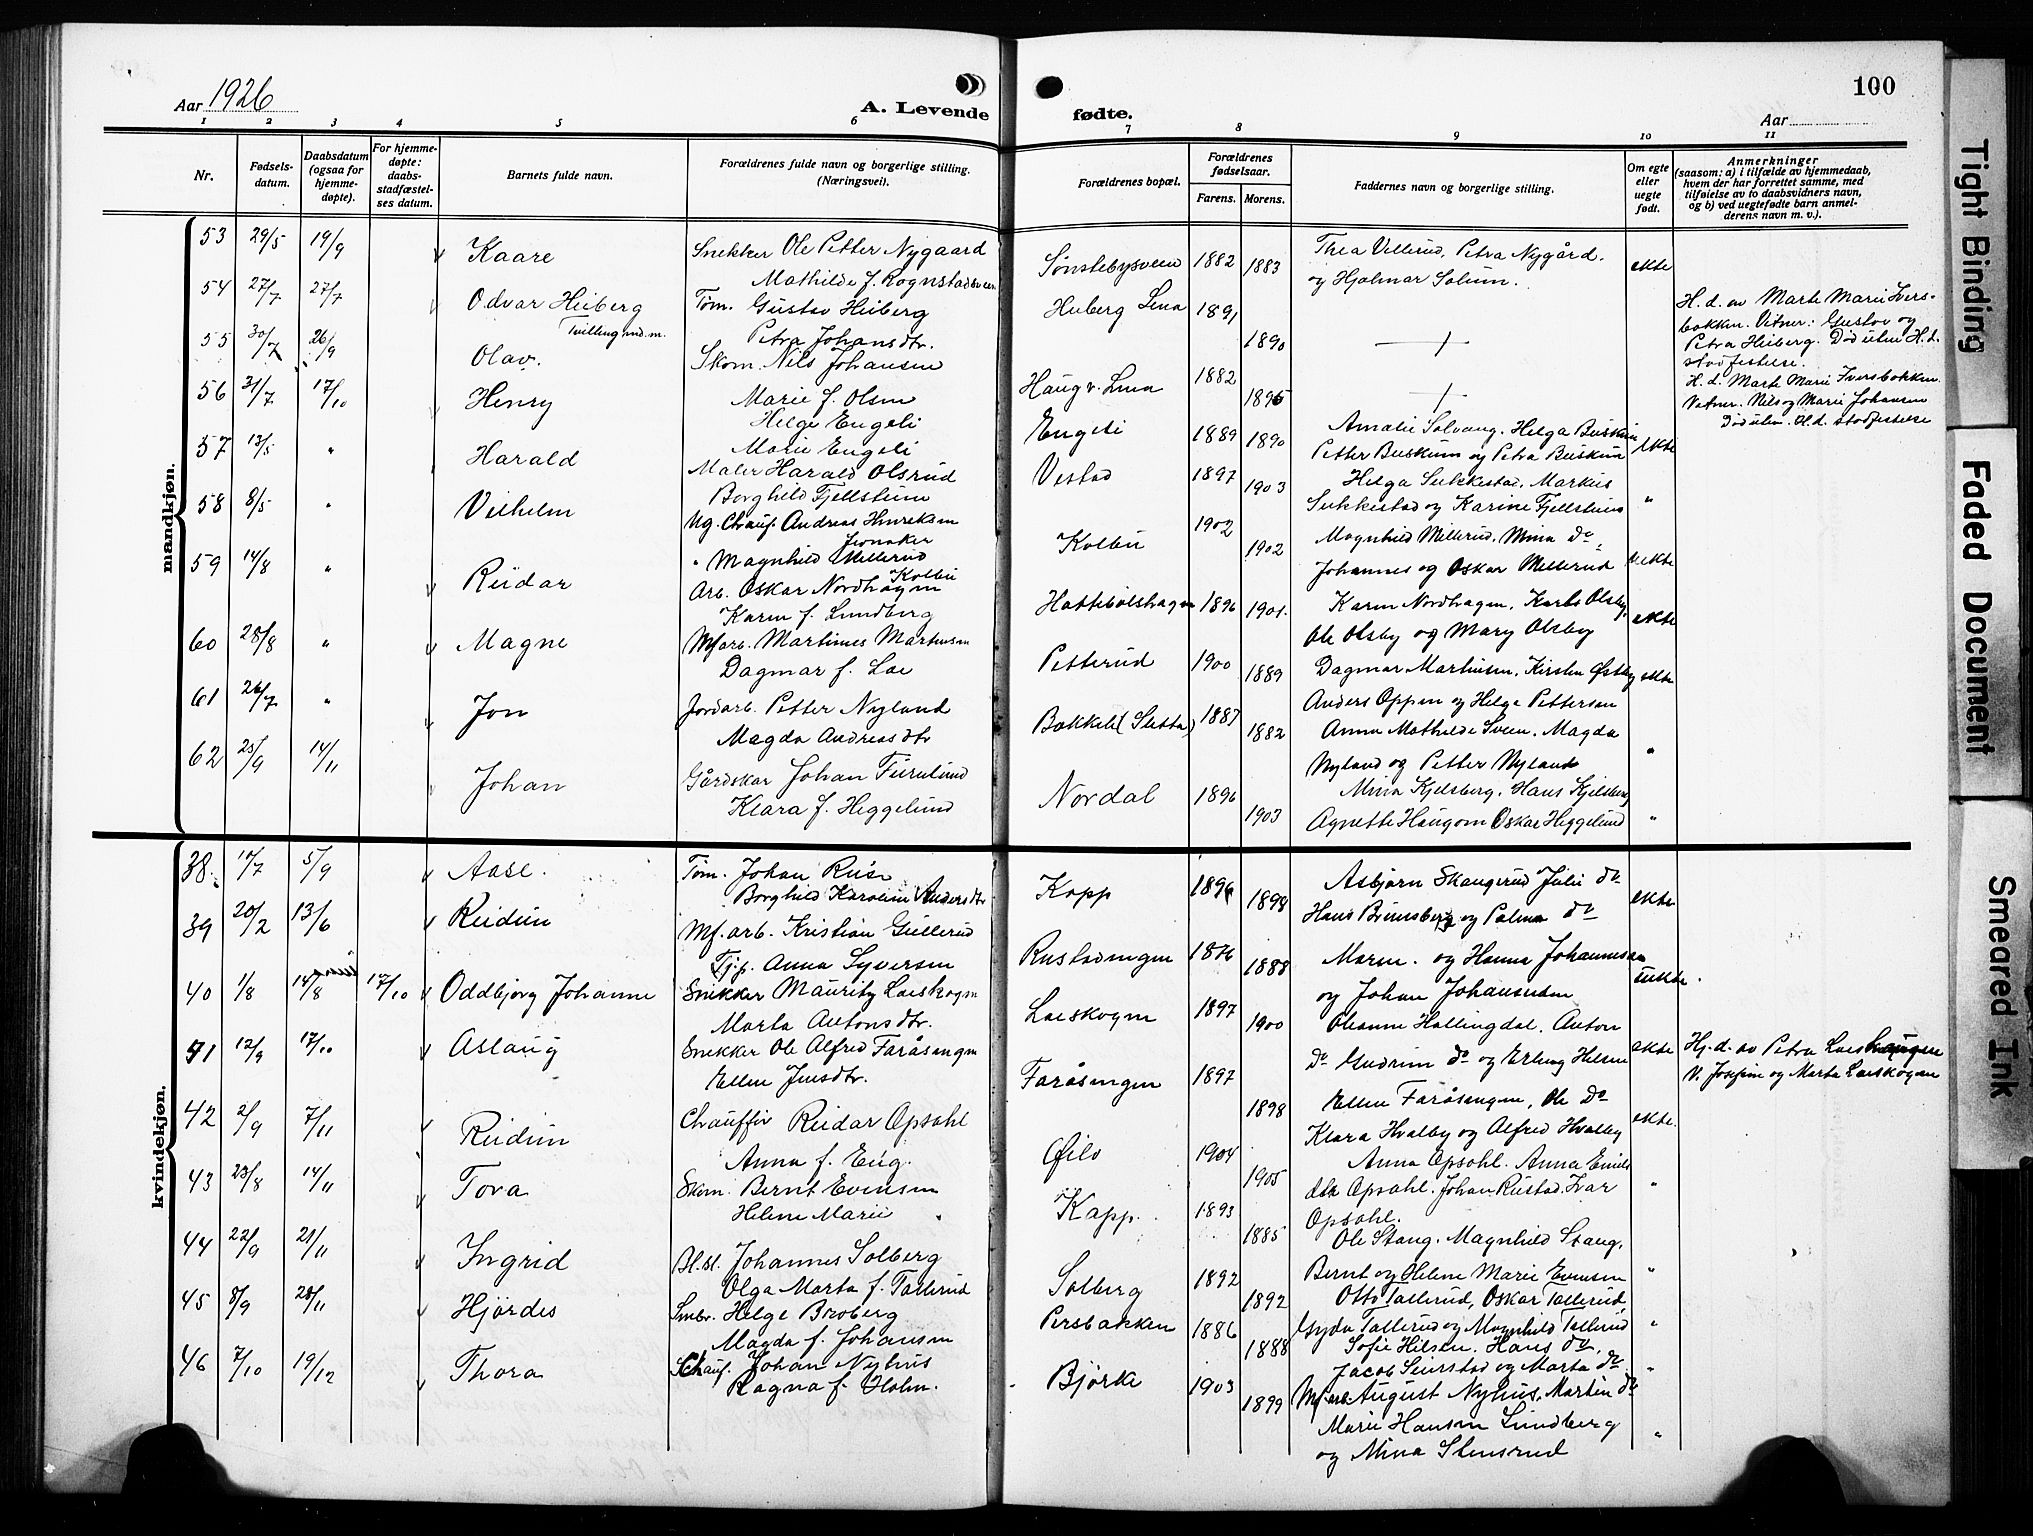 Aar 1926
A. Levende
fødte.
100
Aar
1 2 3 4 5 6 7 8 9 10 11
Nr.
Fødsels-
datum.
Daabsdatum
(ogsaa for
hjemme-
døpte).
For hjemme-
døpte:
daabs-
stadfæstel-
ses datum.
Barnets fulde navn.
Forældrenes fulde navn og borgerlige stilling.
(Næringsvei).
Forældrenes bopæl.
Forældrenes
fødselsaar.
Farens. Morens.
Faddernes navn og borgerlige stilling.
Om egte
eller
uegte
født.
Anmerkninger
(saasom: a) i tilfælde av hjemmedaab,
hvem der har forrettet samme, med
tilføielse av to daabsvidners navn,
og b) ved uegtefødte barn anmel-
derens navn m. v.).
mandkjøn.
53 29/5 19/9 Kaare Snekker Ole Petter Nygaard
Mathilde f. Rognstadsveen
Sønstebysveen 1882 1883 Thea Vellerud, Petra Nygård.
og Hjalmar Solum. ekte
54 27/7 27/7 Odvar Heiberg Tøm. Gustav Heiberg
Tvilling md. m. Petra Johansdtr.
Heiberg Lena 1891 1890
H. d. av Marte Marie Ivers-
bakken. Vitner: Gustav og
Petra Heiberg. Død uten H. d.
stadfestelse.
55 30/7 26/9 Olav. Skom. Nils Johansen
Marie f. Olsen
Haug v. Lena 1882 1895
H. d. Marte Marie Iversbakken.
Vitner. Nils og Marie Johansen
Død uten H. d. stadfestelse
56 31/7 17/10 Henry Helge Engeli
Marie Engeli
Engeli 1889 1890 Amalie Solvang. Helga Buskum
Petter Buskum og Petra Buskum ekte
57 13/5 " Harald Maler Harald Olsrud
Borghild Fjellstuen
Vestad 1897 1903 Helga Sukkestad, Markus
Sukkestad og Karine Fjellstuen "
58 8/5 " Vilhelm Ug. Chauf. Andreas Henriksen
Jevnaker
" Magnhild Millerud
Kolbu
Kolbu 1902 1902 Magnhild Millerud. Mina do,
Johannes og Oskar Millerud uekte
59 14/8 " Reidar Arb. Oskar Nordhagen
Karen f. Lundberg
Hattebølshagen 1896 1901. Karen Nordhagen, Karls Olsby,
Ole Olsby og Mary Olsby ekte
60 28/8 " Magne Mf. arb. Martines Martinsen
Dagmar f. Lae
Petterud 1900 1889 Dagmar Martinsen, Kirsten Østby
Anders Oppen og Helge Pettersen ekte
61 26/7 " Jon Jordarb. Petter Nyland
Magda Andreasdtr
Bakkeli (Sletta) 1887 1882 Anna Mathilde Sveen. Magda
Nyland og Petter Nyland "
62 25/9 14/11 Johan Gårdskar Johan Furulund
Klara f. Heggelund
Nordal 1896 1903 Mina Kjelsberg. Hans Kjelsberg
Agnethe Haugom Oskar Heggelund "
kvindekjøn.
38. 17/7 5/9 Aase. Tøm. Johan Ruse
Borghild Karoline Andersdtr
Kapp 1896 1898 Asbjørn Skaugerud Julie do
Hans Brunsberg og Palma do ekte
39 20/2 13/6 Reidun Mf. arb. Kristian Gullerud
Tj.p. Anna Syversen
Rustadengen 1876 1888 Maren. og Hanna Johannessen
og Johan Johansen uekte.
40 1/8 14/8 17/10 Oddbjørg Johanne Snekker Mauritz Laeskogen
Marta Antonsdtr.
Laeskogen 1897 1900 Oleanne Hallingdal. Anton
do Gudrun do og Erling Helsen ekte
Hj. d. av Petra Laeshaugen
V. Josefine og Marta Laeskogen
41 12/9 17/10 Aslaug Snekker Ole Alfred Faråsengen
Ellen Jensdtr.
Faråsengen 1897 1898 Ellen Faråsengen, Ole do
Klara Hvalby og Alfred Hvalby ekte.
42 2/9 7/11 Reidun Chauffør Reidar Opsahl
Anna f. Eng.
Øilo 1904 1905 Anna Opsahl. Anna Emils
dtr Opsahl. Johan Rustad. Ivar
Opsahl. "
43 23/8 14/11 Tora Skom. Bernt Evensen
Helene Marie "
Kapp. 1893 1885 Ole Stang. Magnhild Stang.
Bernt og Helene Marie Evensen "
44 22/9 21/11 Ingrid Bl. sl. Johannes Solberg
Olga Marta f. Tallerud
Solberg 1892 1892 Otto Tallerud, Oskar Tallerud,
Gyda Tallerud og Magnhild Tallerud "
45 8/9 28/11 Hjørdes Smbr. Helge Broberg
Magda f. Johansen
Persbakken 1886 1888 Sofie Hilsen. Hans do,
Jacob Seierstad og Marta do. "
46 7/10 19/12 Thora Schauf. Johan Nyhus
Ragna f. Holm.
Bjørke 1903 1899 Mf. arb. August Nyhus, Martin do
Marie Hansen Lundberg
og Mina Stensrud "
Tight Binding
Faded Document
Smeared Ink